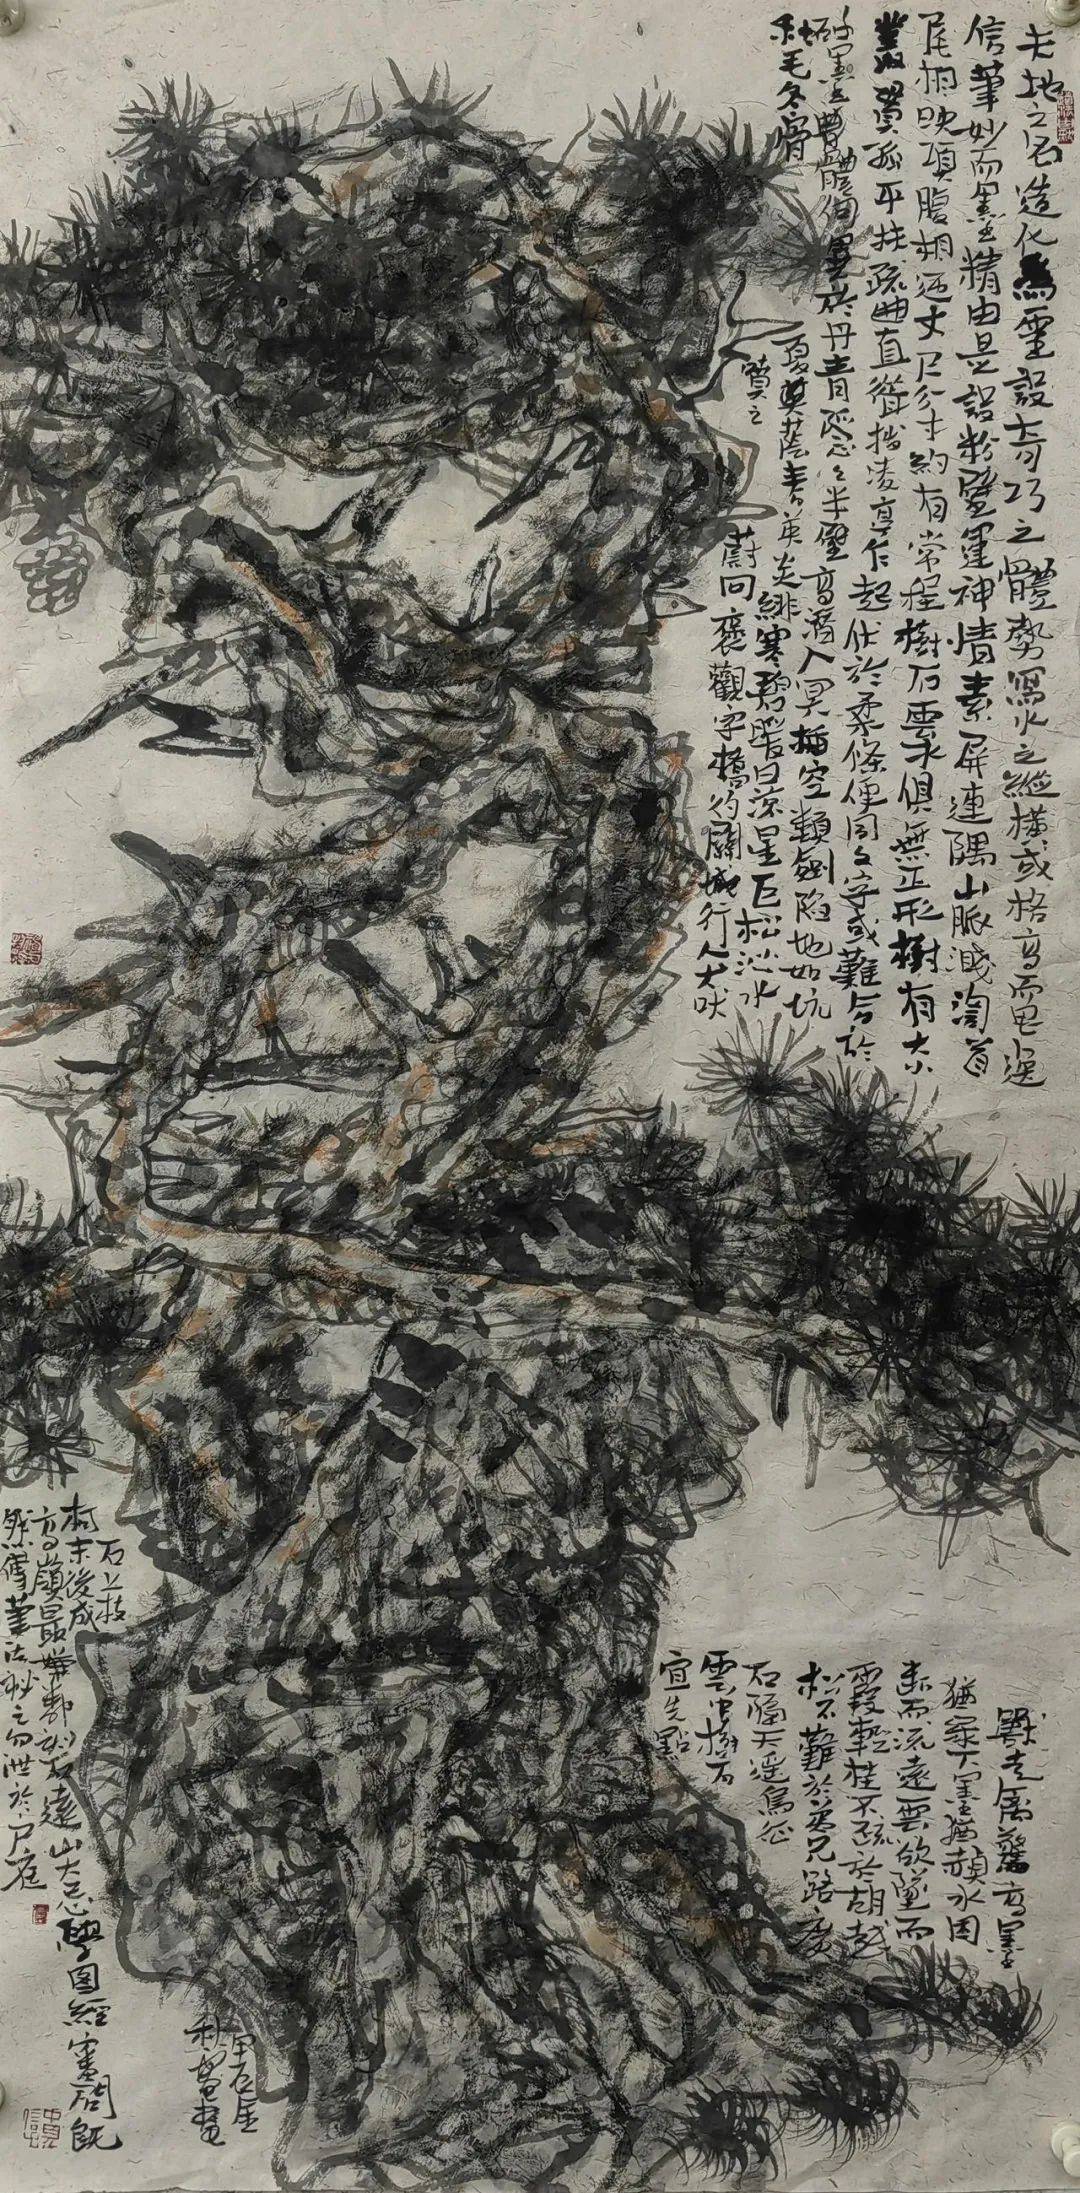 天地之名造化為靈設奇巧之體勢寫水之縱橫或格高而思逸
信筆妙而墨精由是設粉壁運神情素屏連隅山脈濺渹首
尾相映項腹相迎丈尺分寸約有常程樹石雲水俱無正形樹有大小
叢貫孤平扶疏曲直聳拔凌亭乍起伏於柔條便同文字或難合於
破墨體向異於丹青隱々半壁高潛入冥插空類劍陷地如坑
秋毛冬骨
夏蔭春英炎緋寒碧暖日涼星巨松沁水
噴之
蔚冋褒觀宇橋彴關城行人犬吠
獸走禽驚高墨
猶綠下墨猶赬水因
斷而流遠雲欲墜而
霞輕桂不疏於胡越
松不難於弟兄路廣
石隔天遙鳥征
雲中樹石
宜先點
石上枝
柯末後成
高嶺最嫌鄰刻石遠山大忌學圖經審問既
然傳筆法秘之勿泄於戶庭